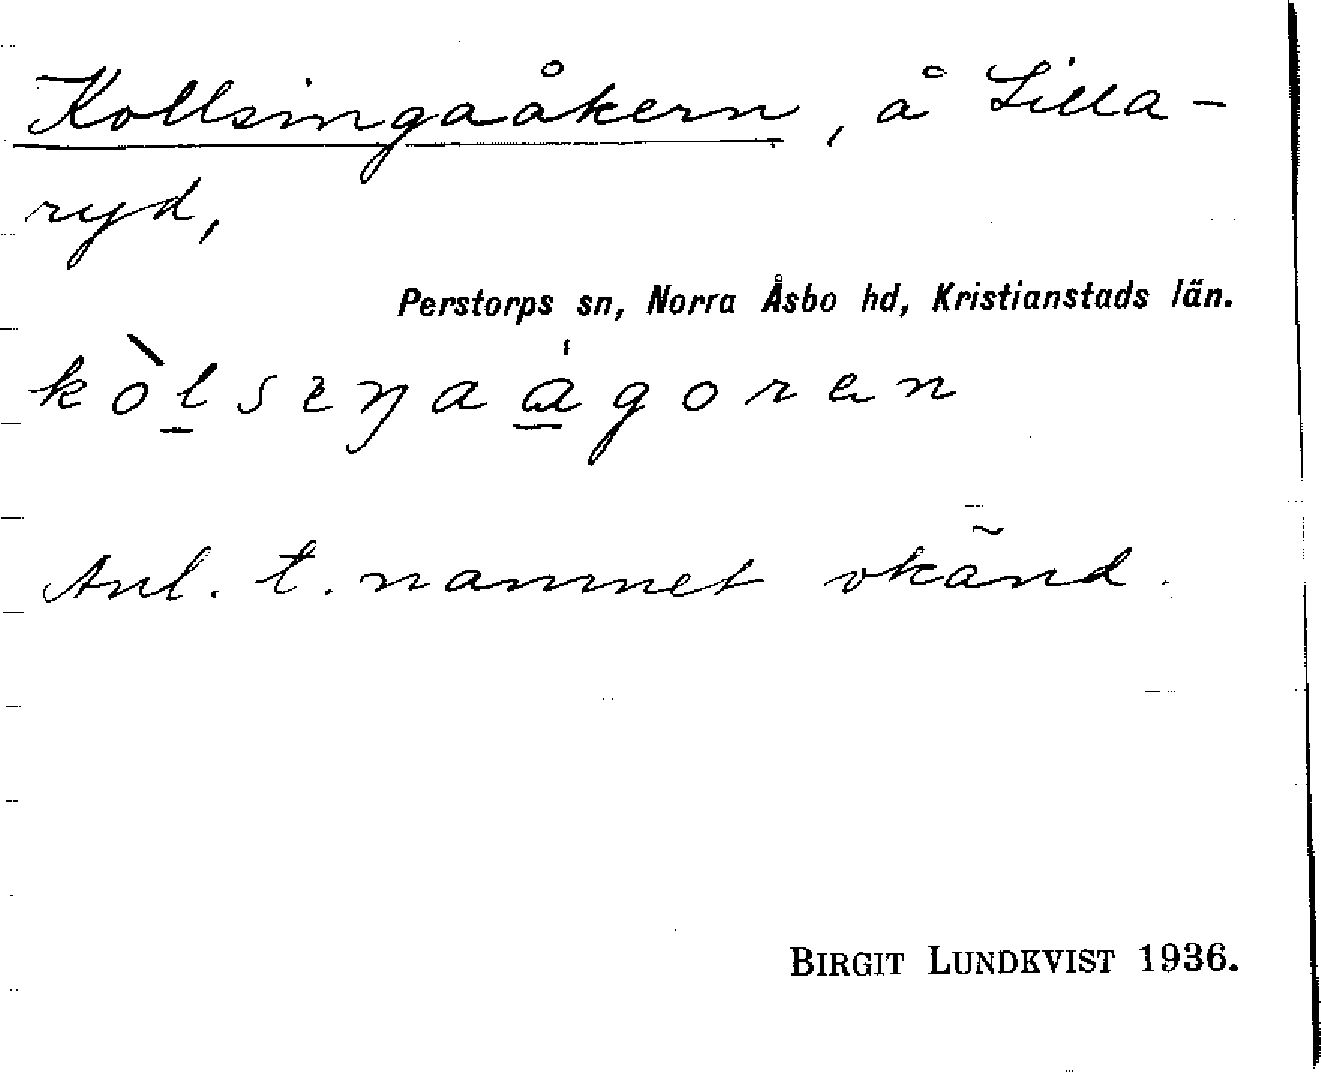 Kollsingaåkern, å Lilla-
ryd,
Perstorps sn, Norra Åsbo hd, Kristianstads län.
Anl. t. namnet okänd.
BIRGIT LUNDKVIST 1936.